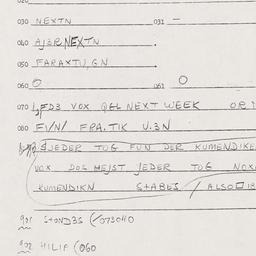 020
030 NEXTN 031 —
040 AJ3R NEXTN .
050 FARAXTU,GN .
060 O 061 O
070 VOX Q&L NEXT WEEK OR
080 FI/N/ FRA.TIK U.3N
JEDER TOG FUN DER KUMENDIKE
VOX DOS HEJST JEDER TOG
KUMENDIKN STABES / ALSO
901 STOND3S (/073040
902 HILIF (060